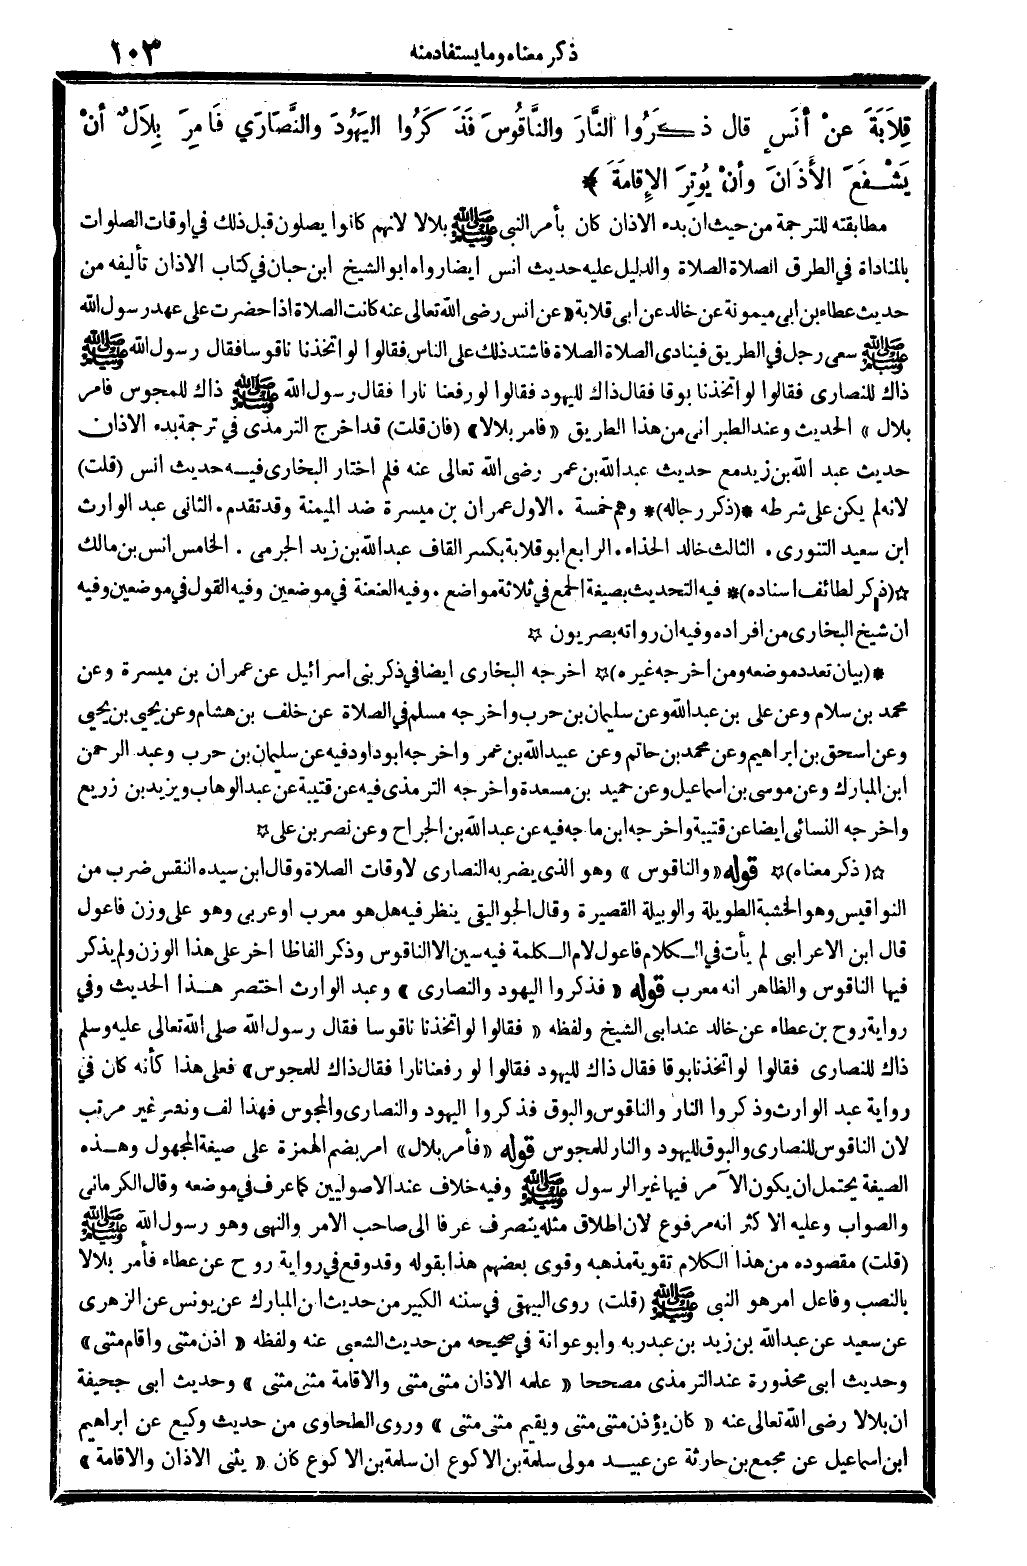 ذكر معناه وما يستفاد منه ١٠٣
قِلاَبَةَ عنْ أنَسٍ قال ذَكَرُوا النَّارَ والنَّاقُوسَ فَذَكَرُوا اليَهُودَ والنَّصَارَي فَأمِرَ بِلاَلٌ أنْ
يَشْفَعَ الأَذَانَ وأنْ يُوتِرَ الإِقامَةَ ﴾
مطابقته للترجمة من حيث ان بدء الاذان كان بأمر النبى ﷺ بلالا لانهم كانوا يصلون قبل ذلك في اوقات الصلوات
بالمناداة في الطرق الصلاة الصلاة والدليل عليه حديث انس ايضا رواه ابو الشيخ ابن حبان في كتاب الاذان تأليفه من
حديث عطاء بن ابى ميمونة عن خالد عن ابى قلابة «عن انس رضى الله تعالى عنه كانت الصلاة اذا حضرت على عهد رسول الله
ﷺ سعى رجل في الطريق فينادى الصلاة الصلاة فاشتد ذلك على الناس فقالوا لو اتخذنا ناقوسا فقال رسول الله ﷺ
ذاك للنصارى فقالوا لو اتخذنا بوقا فقال ذاك لليهود فقالوا لو رفعنا نارا فقال رسول الله ﷺ ذاك للمجوس فامر
بلال » الحديث وعند الطبرانى من هذا الطريق «فامر بلالا» (فان قلت) قد اخرج الترمذى في ترجمة بدء الاذان
حديث عبد الله بن زيد مع حديث عبد الله بن عمر رضى الله تعالى عنه فلم اختار البخارى فيه حديث انس (قلت)
لانه لم يكن على شرطه *(ذكر رجاله)* وهم خمسة . الاول عمران بن ميسرة ضد الميمنة وقد تقدم . الثانى عبد الوارث
ابن سعيد التنورى . الثالث خالد الحذاء . الرابع ابو قلابة بكسر القاف عبد الله بن زيد الجرمى . الخامس انس بن مالك
☆(ذكر لطائف اسناده)* فيه التحديث بصيغة الجمع في ثلاثة مواضع . وفيه العنعنة في موضعين وفيه القول في موضعين وفيه
ان شيخ البخارى من افراده وفيه ان رواته بصريون ☆
*(بيان تعدد موضعه ومن اخرجه غيره)☆ اخرجه البخارى ايضا في ذكر بنى اسرائيل عن عمران بن ميسرة وعن
محمد بن سلام وعن على بن عبد الله وعن سليمان بن حرب واخرجه مسلم في الصلاة عن خلف بن هشام وعن يحيى بن يحيى
وعن اسحق بن ابراهيم وعن محمد بن حاتم وعن عبيد الله بن عمر واخرجه ابو داود فيه عن سليمان بن حرب وعبد الرحمن
ابن المبارك وعن موسى بن اسماعيل وعن حميد بن مسعدة واخرجه الترمذى فيه عن قتيبة عن عبد الوهاب ويزيد بن زريع
واخرجه النسائى ايضا عن قتيبة واخرجه ابن ماجه فيه عن عبد الله بن الجراح وعن نصر بن على ☆
☆(ذكر معناه)☆ قوله «والناقوس» وهو الذى يضرب به النصارى لاوقات الصلاة وقال ابن سيده النقس ضرب من
النواقيس وهو الخشبة الطويلة والوبيلة القصيرة وقال الجواليقى ينظر فيه هل هو معرب او عربى وهو على وزن فاعول
قال ابن الاعرابى لم يأت في الكلام فاعول لام الكلمة فيه سين الا الناقوس وذكر الفاظا اخر على هذا الوزن ولم يذكر
فيها الناقوس والظاهر انه معرب قوله « فذكروا اليهود والنصارى » وعبد الوارث اختصر هذا الحديث وفي
رواية روح بن عطاء عن خالد عند ابى الشيخ ولفظه « فقالوا لو اتخذنا ناقوسا فقال رسول الله صلى الله تعالى عليه وسلم
ذاك للنصارى فقالوا لو اتخذنا بوقا فقال ذاك لليهود فقالوا لو رفعنا نارا فقال ذاك للمجوس» فعلى هذا كأنه كان في
رواية عبد الوارث وذكروا النار والناقوس والبوق فذكروا اليهود والنصارى والمجوس فهذا لف ونشر غير مرتب
لان الناقوس للنصارى والبوق لليهود والنار للمجوس قوله «فأمر بلال» امر بضم الهمزة على صيغة المجهول وهذه
الصيغة يحتمل ان يكون الآمر فيها غير الرسول ﷺ وفيه خلاف عند الاصوليين كما عرف في موضعه وقال الكرمانى
والصواب وعليه الاكثر انه مرفوع لان اطلاق مثله ينصرف عرفا الى صاحب الامر والنهى وهو رسول الله ﷺ
(قلت) مقصوده من هذا الكلام تقوية مذهبه وقوى بعضهم هذا بقوله وقد وقع في رواية روح عن عطاء فأمر بلالا
بالنصب وفاعل امر هو النبى ﷺ (قلت) روى البيهقى في سننه الكبير من حديث ابن المبارك عن يونس عن الزهرى
عن سعيد عن عبد الله بن زيد بن عبد ربه وابو عوانة في صحيحه من حديث الشعبى عنه ولفظه « اذن مثنى واقام مثنى»
وحديث ابى محذورة عند الترمذى مصححا « علمه الاذان مثنى مثنى والاقامة مثنى مثنى » وحديث ابى جحيفة
ان بلالا رضى الله تعالى عنه « كان يؤذن مثنى مثنى ويقيم مثنى مثنى » وروى الطحاوى من حديث وكيع عن ابراهيم
ابن اسماعيل عن مجمع بن حارثة عن عبيد مولى سلمة بن الاكوع ان سلمة بن الاكوع كان « يثنى الاذان والاقامة »